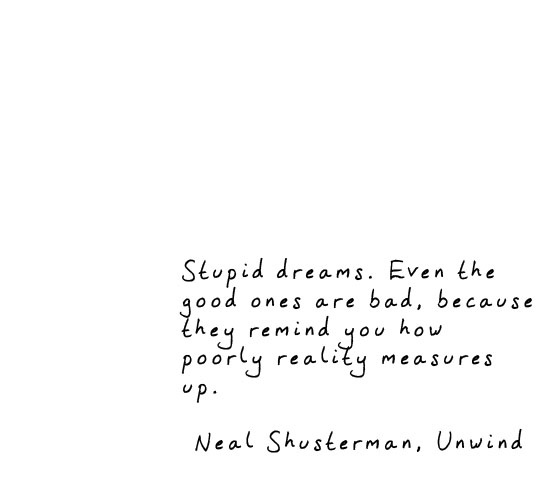 Stupid dreams. Even the
good ones are bad, because
they remind you how
poorly reality measures
up.
Neal Shusterman, Unwind